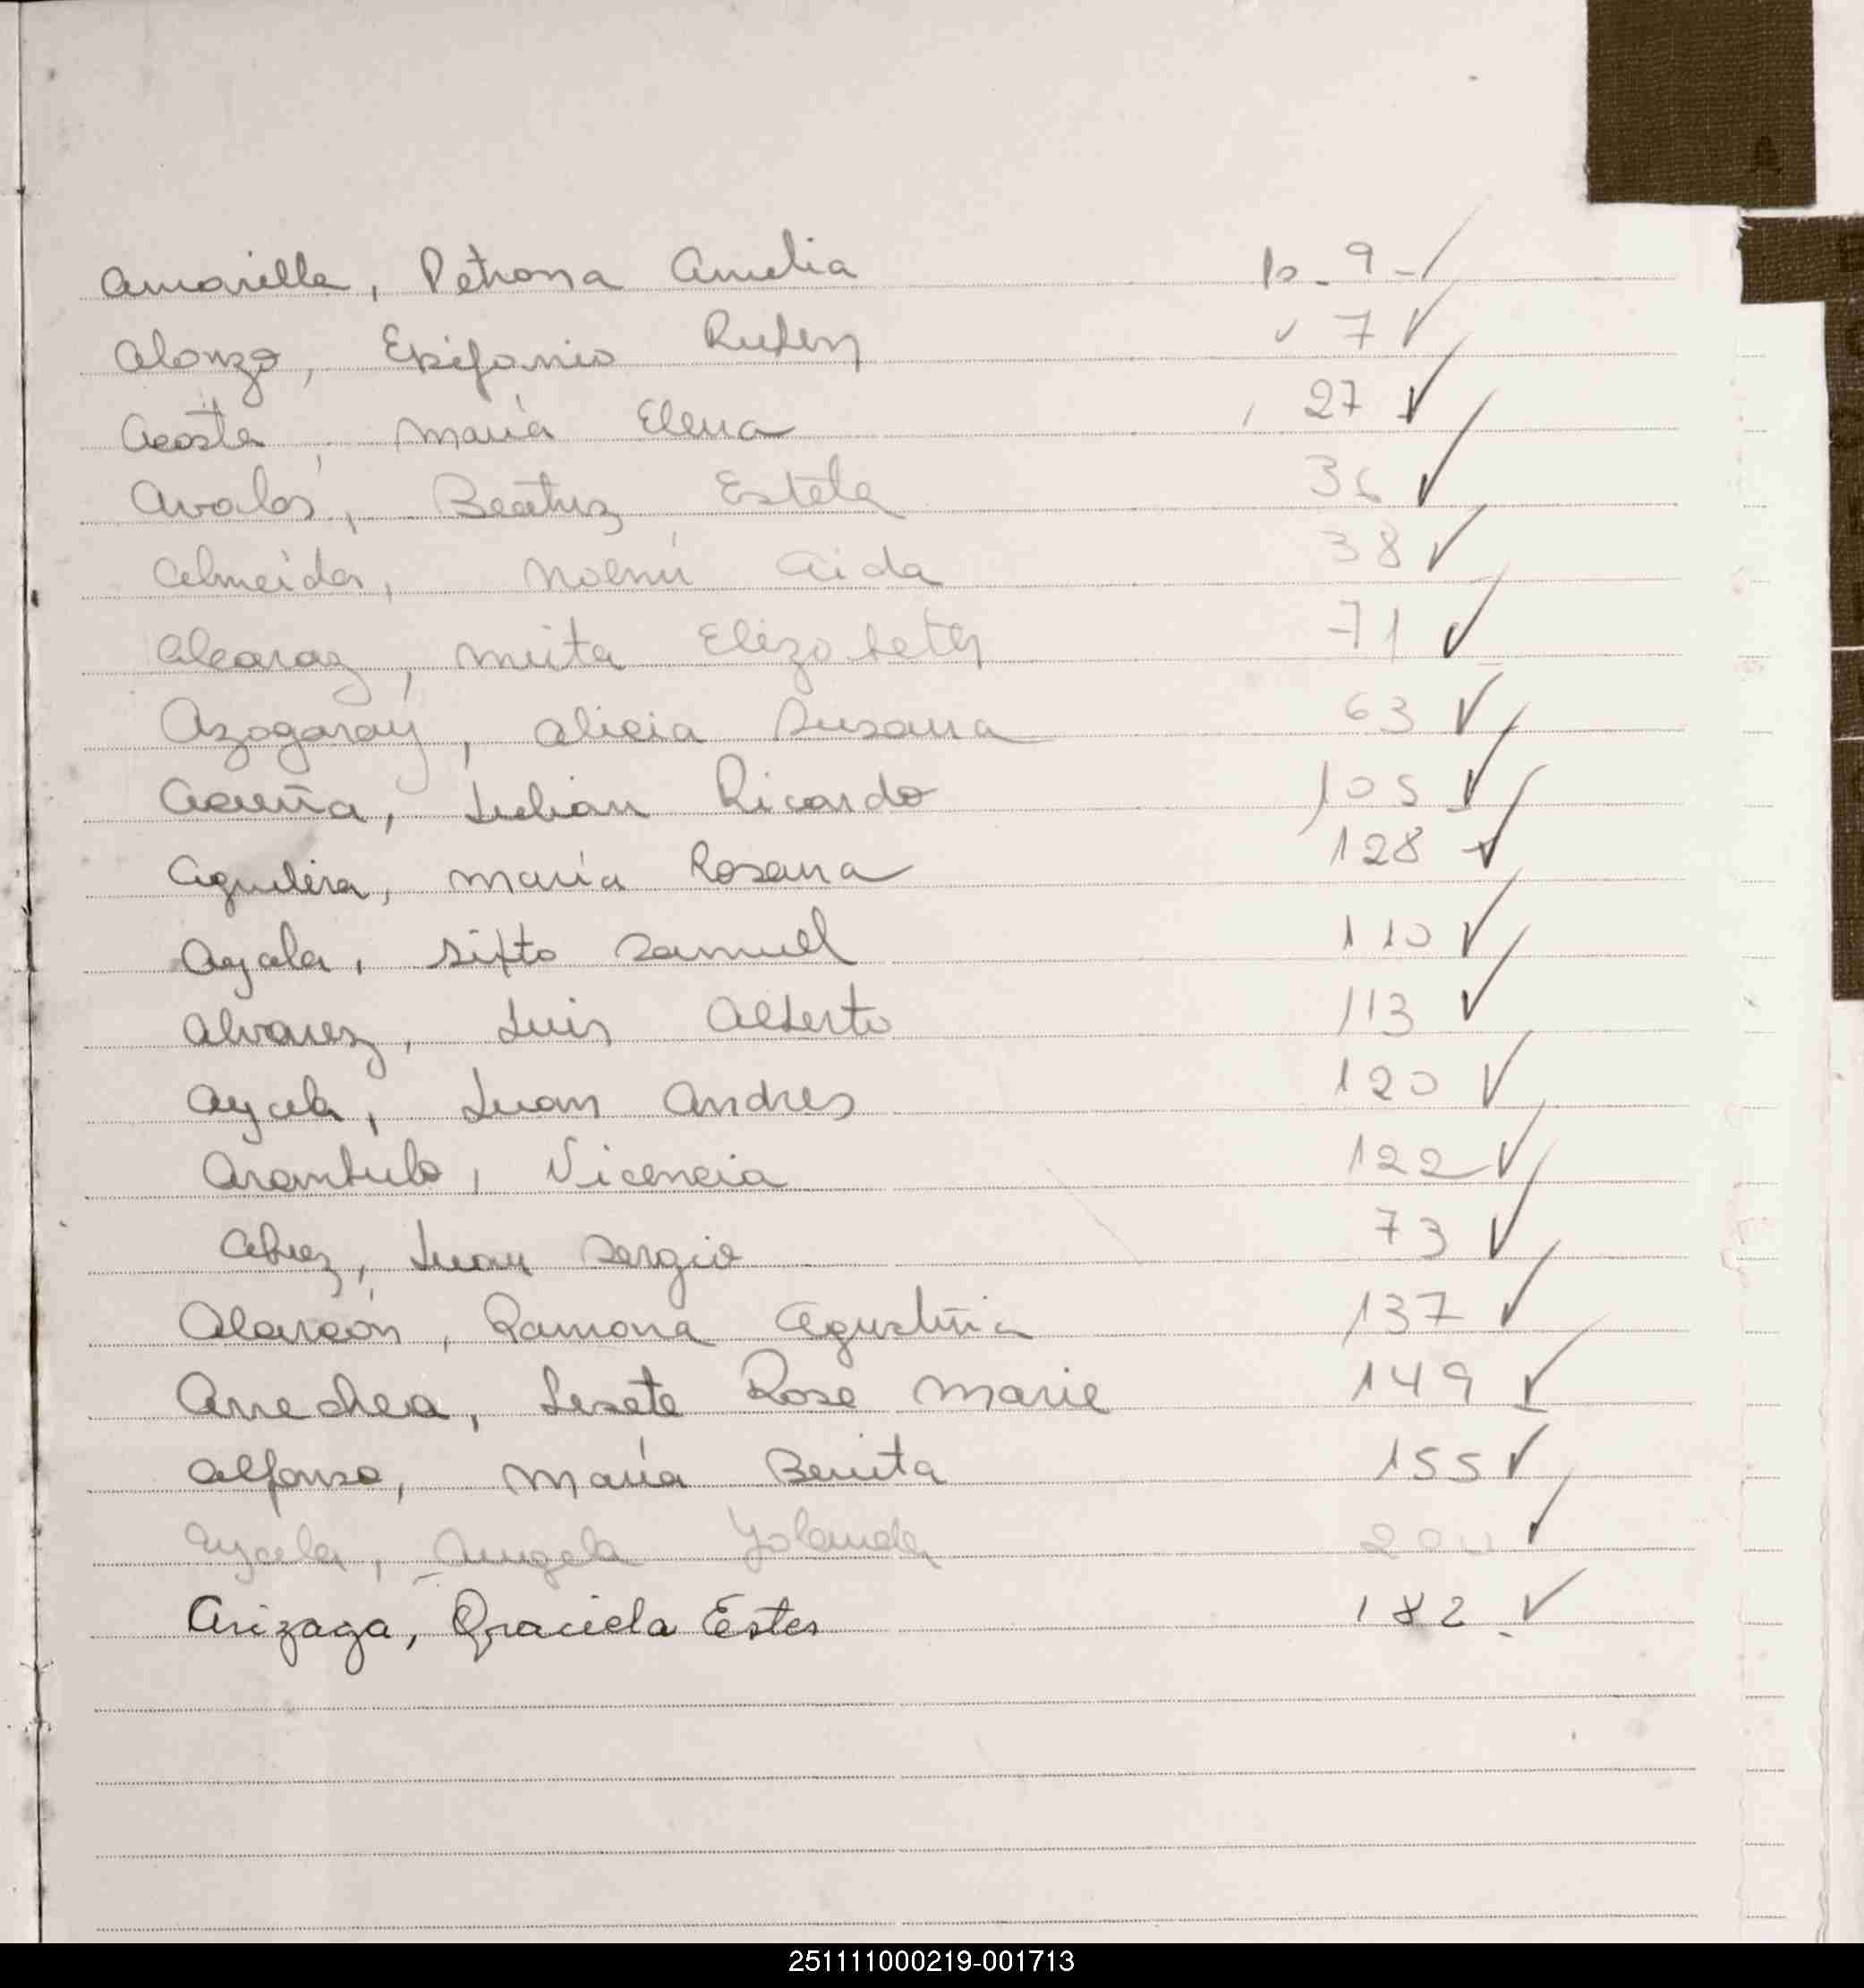 A
Amarilla, Petrona Amelia p. 9 - ✓
Alonzo, Epifanio Ruben 7 ✓
Acosta, María Elena 27 ✓
Avalos, Beatriz Estela 36 ✓
Almeida, Noemí Aida 38 ✓
Alcaraz, Mirta Elizabeth 71 ✓
Azogaray, Alicia Susana 63 ✓
Acuña, Julian Ricardo 105 ✓
Aguilera, María Rosana 128 ✓
Ayala, Sixto Samuel 110 ✓
Alvarez, Luis Alberto 113 ✓
Ayala, Juan Andres 120 ✓
Arambulo, Vicencia 122 ✓
Juan Sergio 73 ✓
Alarcón, Ramona Agustina 137 ✓
Arrechea, Lisete Rose Marie 149 ✓
Alfonso, María Benita 155 ✓
Ayala, Angela Yolanda 200 ✓
Arizaga, Graciela Ester 182 ✓
251111000219-001713